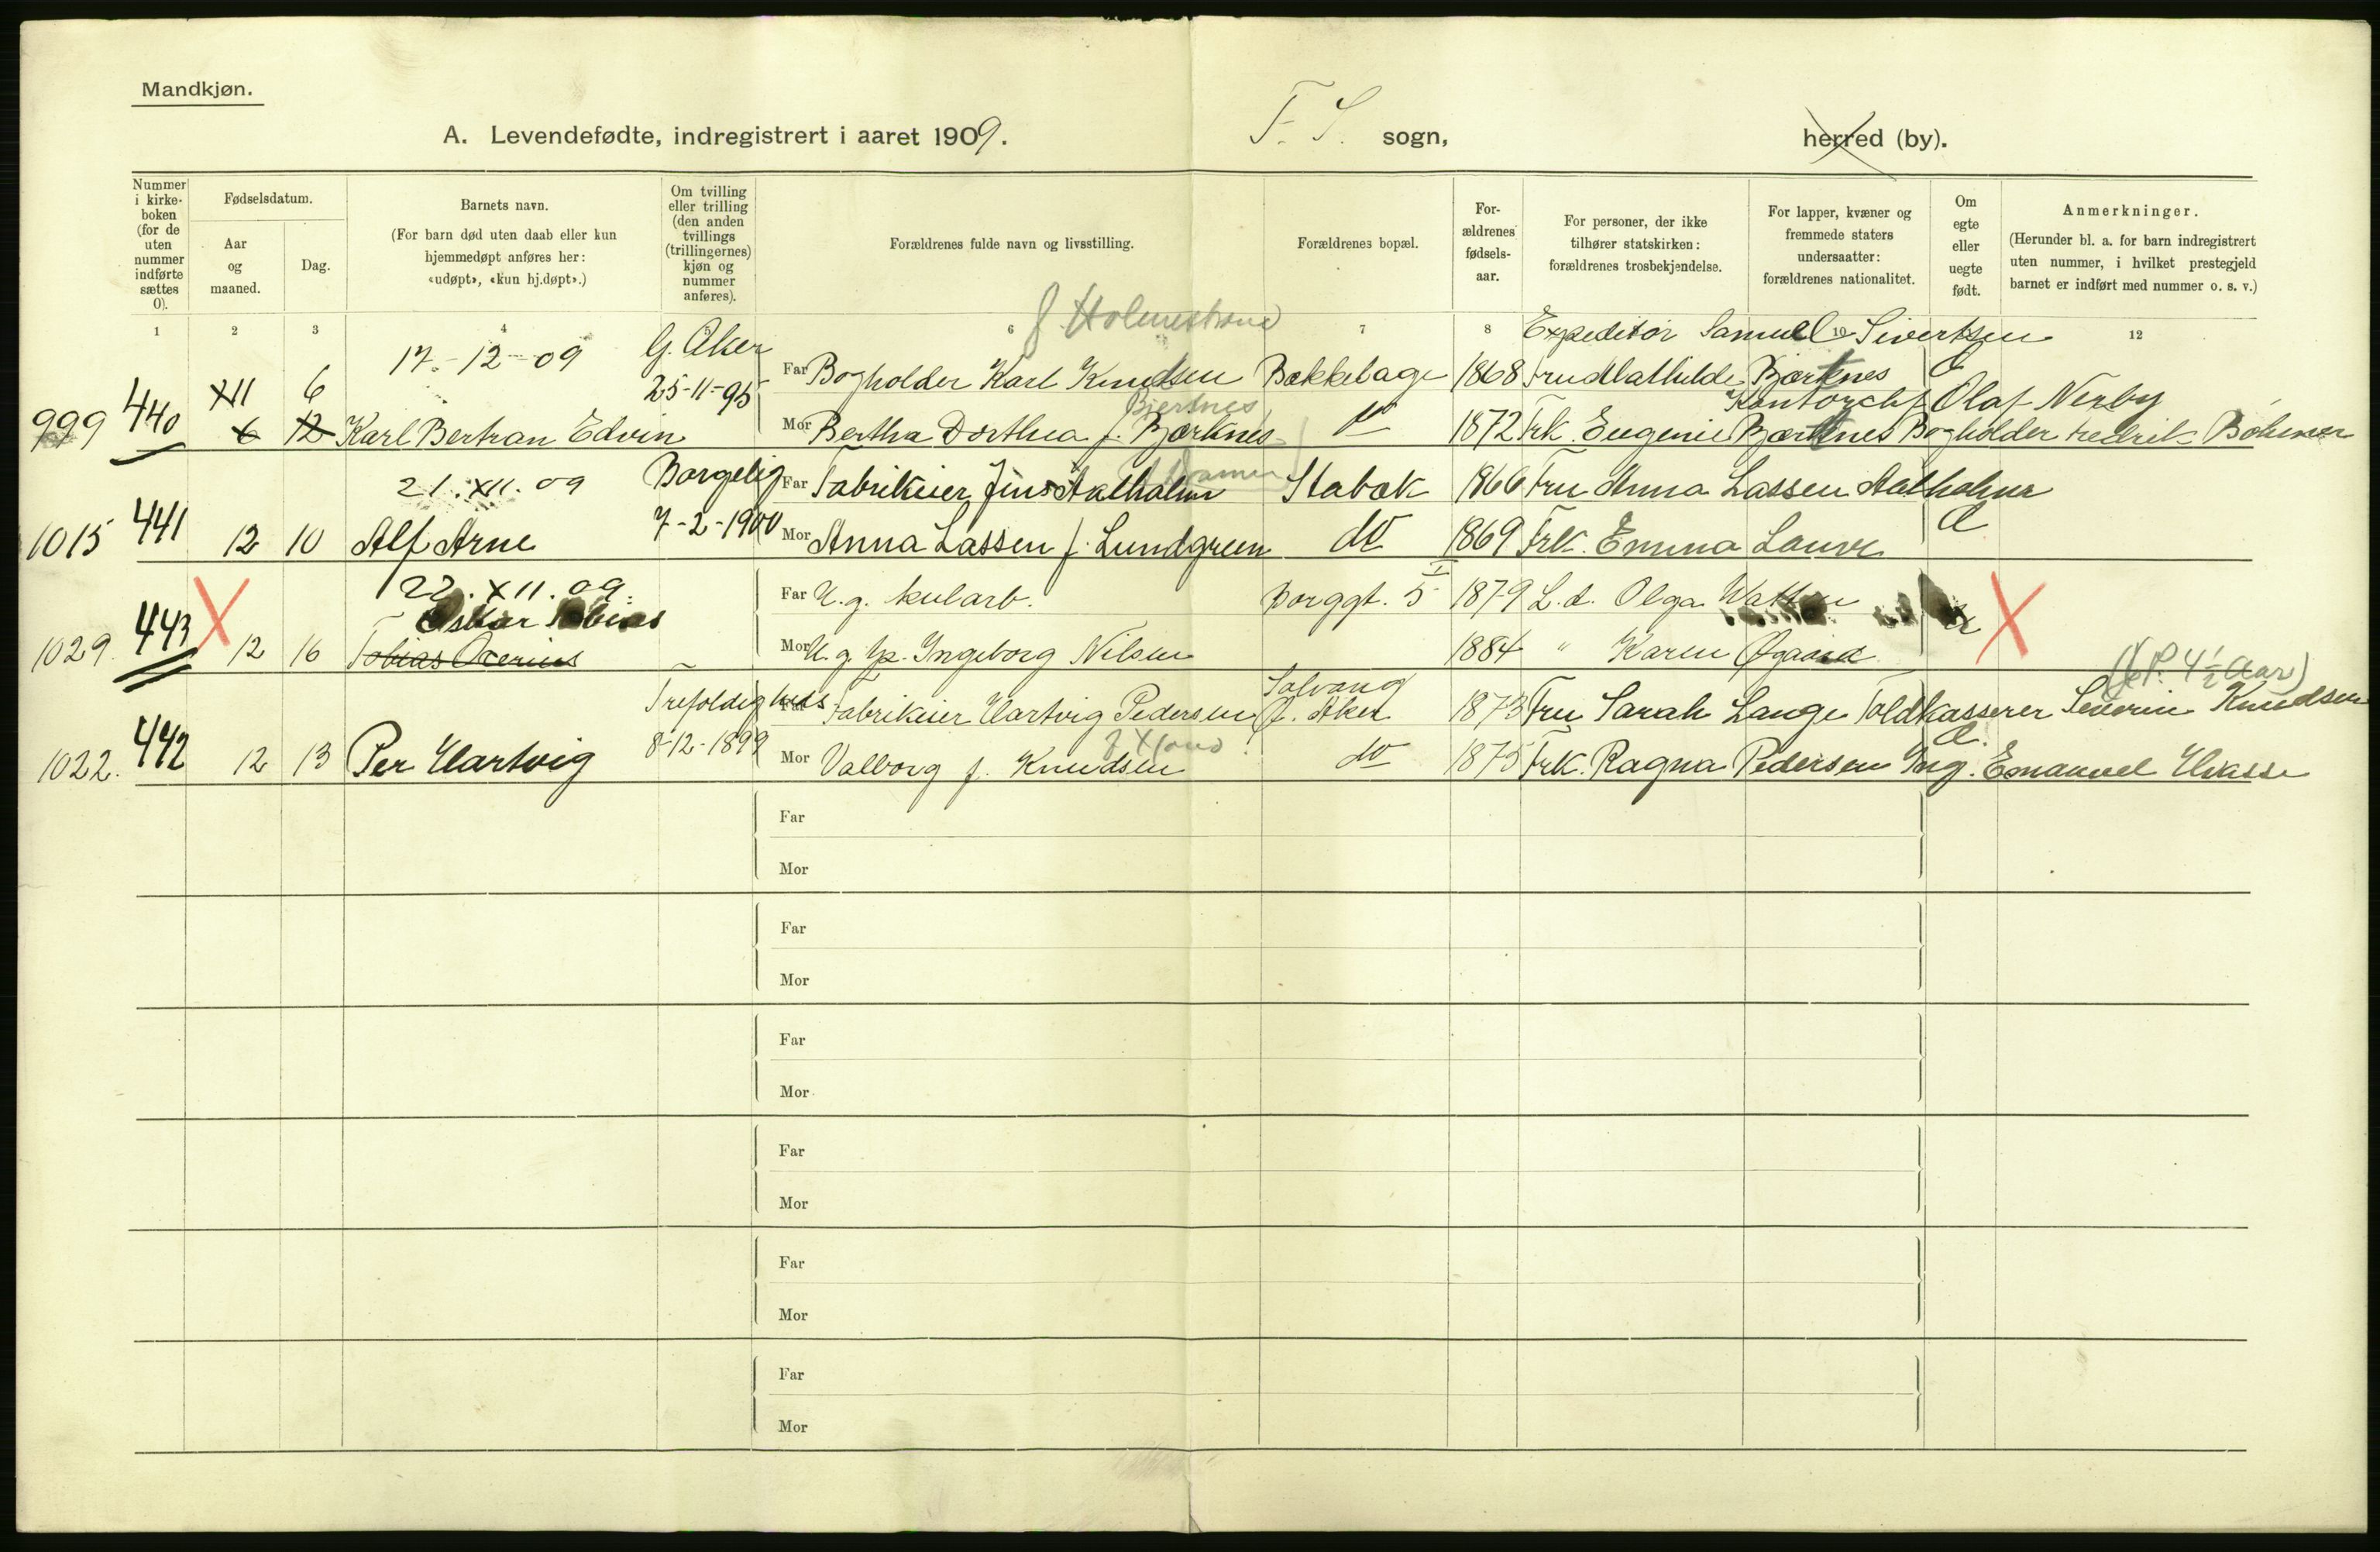 Mandkjøn.
A. Levendefødte, indregistrert i aaret 1909.
F. S. sogn,
herred (by).
Nummer i kirkeboken (for de uten nummer indførte sættes 0).
Fødselsdatum.
Aar og maaned.
Dag.
Barnets navn.
(For barn død uten daab eller kun hjemmedøpt anføres her: «udøpt», «kun hj.døpt».)
Om tvilling eller trilling (den anden tvillings (trillingernes) kjøn og nummer anføres).
Forældrenes fulde navn og livsstilling.
Forældrenes bopæl.
Forældrenes fødselsaar.
For personer, der ikke tilhører statskirken: forældrenes trosbekjendelse.
For lapper, kvæner og fremmede staters undersaatter: forældrenes nationalitet.
Om egte eller uegte født.
Anmerkninger.
(Herunder bl. a. for barn indregistrert uten nummer, i hvilket prestegjeld barnet er indført med nummer o. s. v.)
1 2 3 4 5 6 7 8 10 12
f Holmestrand
Expeditør Samuel Sivertsen
17-12-09 G. Aker
XII 6 25-11-95 Far Bogholder Karl Knudsen Bækkelaget 1868 Fru Mathilde Bjørknes
Bjertnes Kontorchf Olaf Nerby
999 440 6 12 Karl Bertran Edvin Mor Bertha Dorthea f. Bjørknes do 1872 Frk. Eugenie Bjørknes Bogholder Fredrik Böhmer
21.XII.09 Borgelig Far Fabrikeier Jens Aalholm Stabæk 1866 Fru Anna Lassen Aalholm
1015 441 12 10 Alf Arne 7-2-1900 Mor Anna Lassen f. Lundgreen do 1869 Frk. Emma
22.XII.09. Far U.g. kularb. Borggt. 5 1879 L.d. Olga
Oskar Tobias
1029. 443 X 12 16 Tobias Mor U.g. Ingeborg Nilsen 1884 " Karen Øgaard X
Trefoldigheds Far Fabrikeier Hartvig Pedersen Solvang Ø. Aker 1873 Fru Sarah Lange Toldkasserer Severin Knudsen
(f P. 4 1/2 Aar)
1022. 442 12 13 Per Hartvig 8-12-1899 Mor Valborg f. Knudsen do 1875 Frk. Ragna Pedersen Ing. Emanuel Hvasse
Far
Mor
Far
Mor
Far
Mor
Far
Mor
Far
Mor
Far
Mor